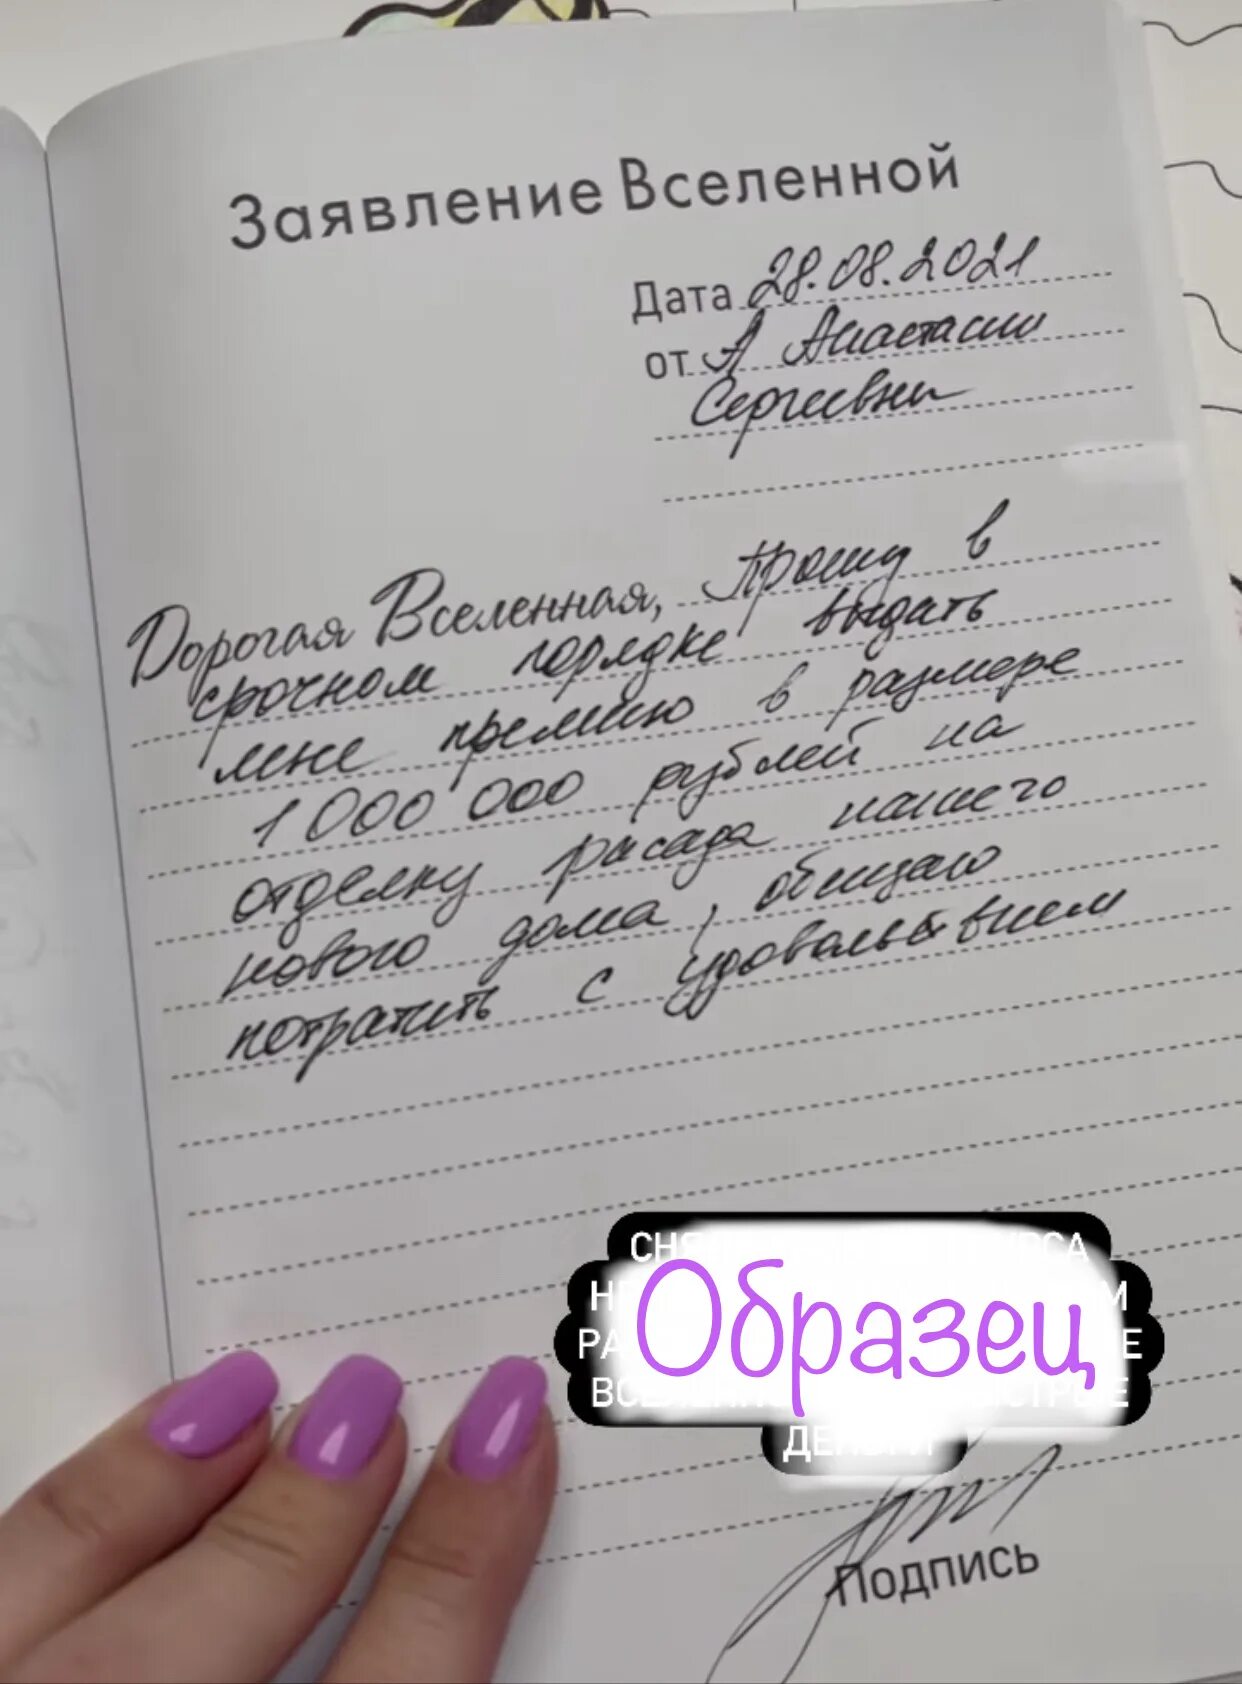 Заявление Вселенной
Дата 28.08.2021
от А Анастасии
Сергеевны
Дорогая Вселенная, Прошу в
срочном порядке выдать
мне премию в размере
1 000 000 рублей на
отделку фасада нашего
нового дома, обещаю
потратить с удовольствием
Образец
ДЕНЬГИ
Подпись